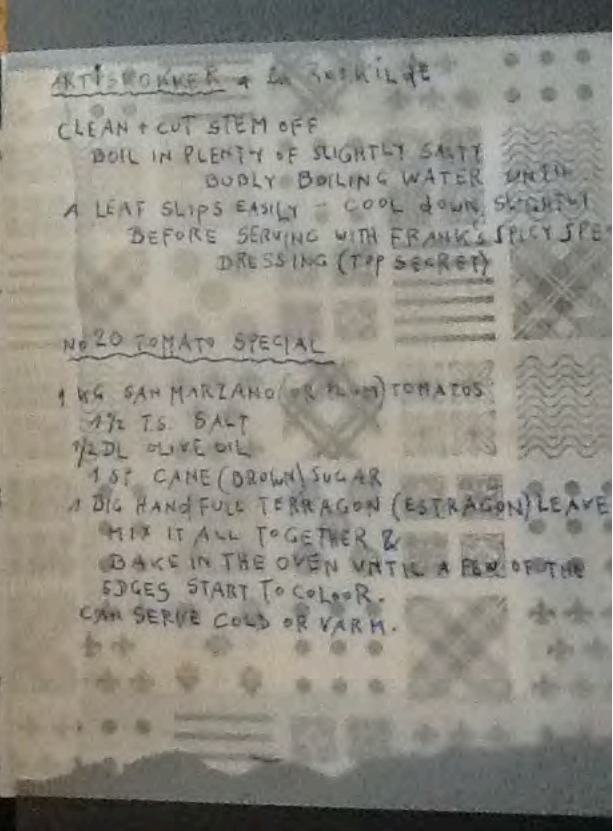 ARTISKOKKER a la ROSKILDE
CLEAN + CUT STEM OFF
BOIL IN PLENTY OF SLIGHTLY SALTY
BUBLY BOILING WATER UNTIL
A LEAF SLIPS EASILY - COOL down SLIGHTLY
BEFORE SERVING WITH FRANK'S SPICY SPE
DRESSING (TOP SECRET)
No 20 TOMATO SPECIAL
1 KG SAN MARZANO (OR PLUM) TOMATOS
1 1/2 T.S. SALT
1/2 DL OLIVE OIL
1 SP. CANE (BROWN) SUGAR
1 BIG HANdFULL TERRAGON (ESTRAGON) LEAVE
MIX IT ALL TOGETHER &
BAKE IN THE OVEN UNTIL A FEW OF THE
EDGES START TO COLOUR.
CAN SERVE COLD OR VARM.